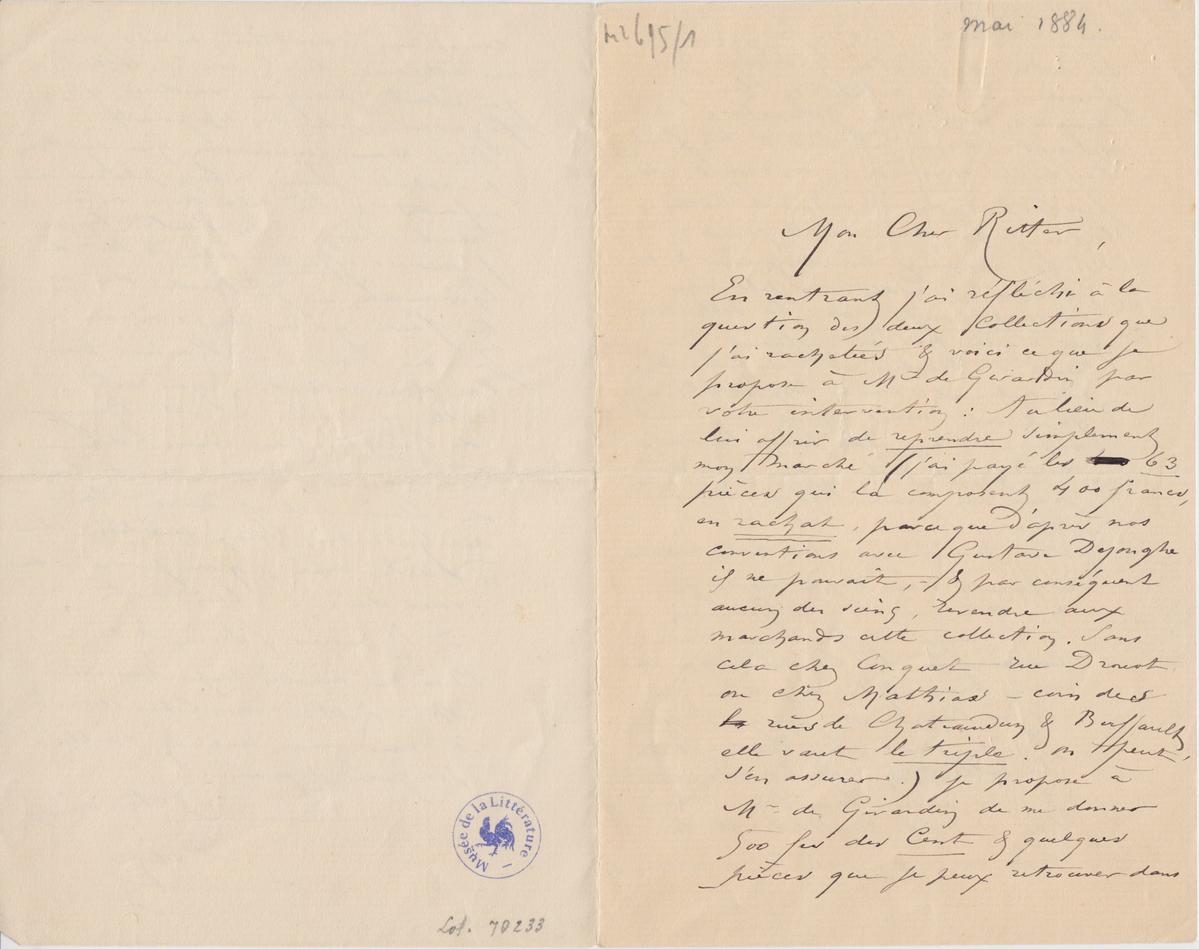 ML 695/1
mai 1884.
Mon Cher Ritter,
En rentrant j'ai réfléchi à la
question des deux collections que
j'ai rachetées & voici ce que je
propose à Mr de Girardin par
votre intervention : Au lieu de
lui offrir de reprendre simplement
mon marché (j'ai payé les 63
pièces qui la composent 400 francs,
en rachat, parce que d'après nos
conventions avec Gustave Dejonghe
il ne pouvait, - & par conséquent
aucun des siens, revendre aux
marchands cette collection. Sans
cela chez Conquet rue Drouot
ou chez Mathias - coin des
rues de Chateaudun & Buffault,
elle vaut le triple. on peut
s'en assurer.) je propose à
Mr de Girardin de me donner
500 frs des Cent & quelques
pièces que je peux retrouver dans
Musée de la Littérature
Lof. 70233